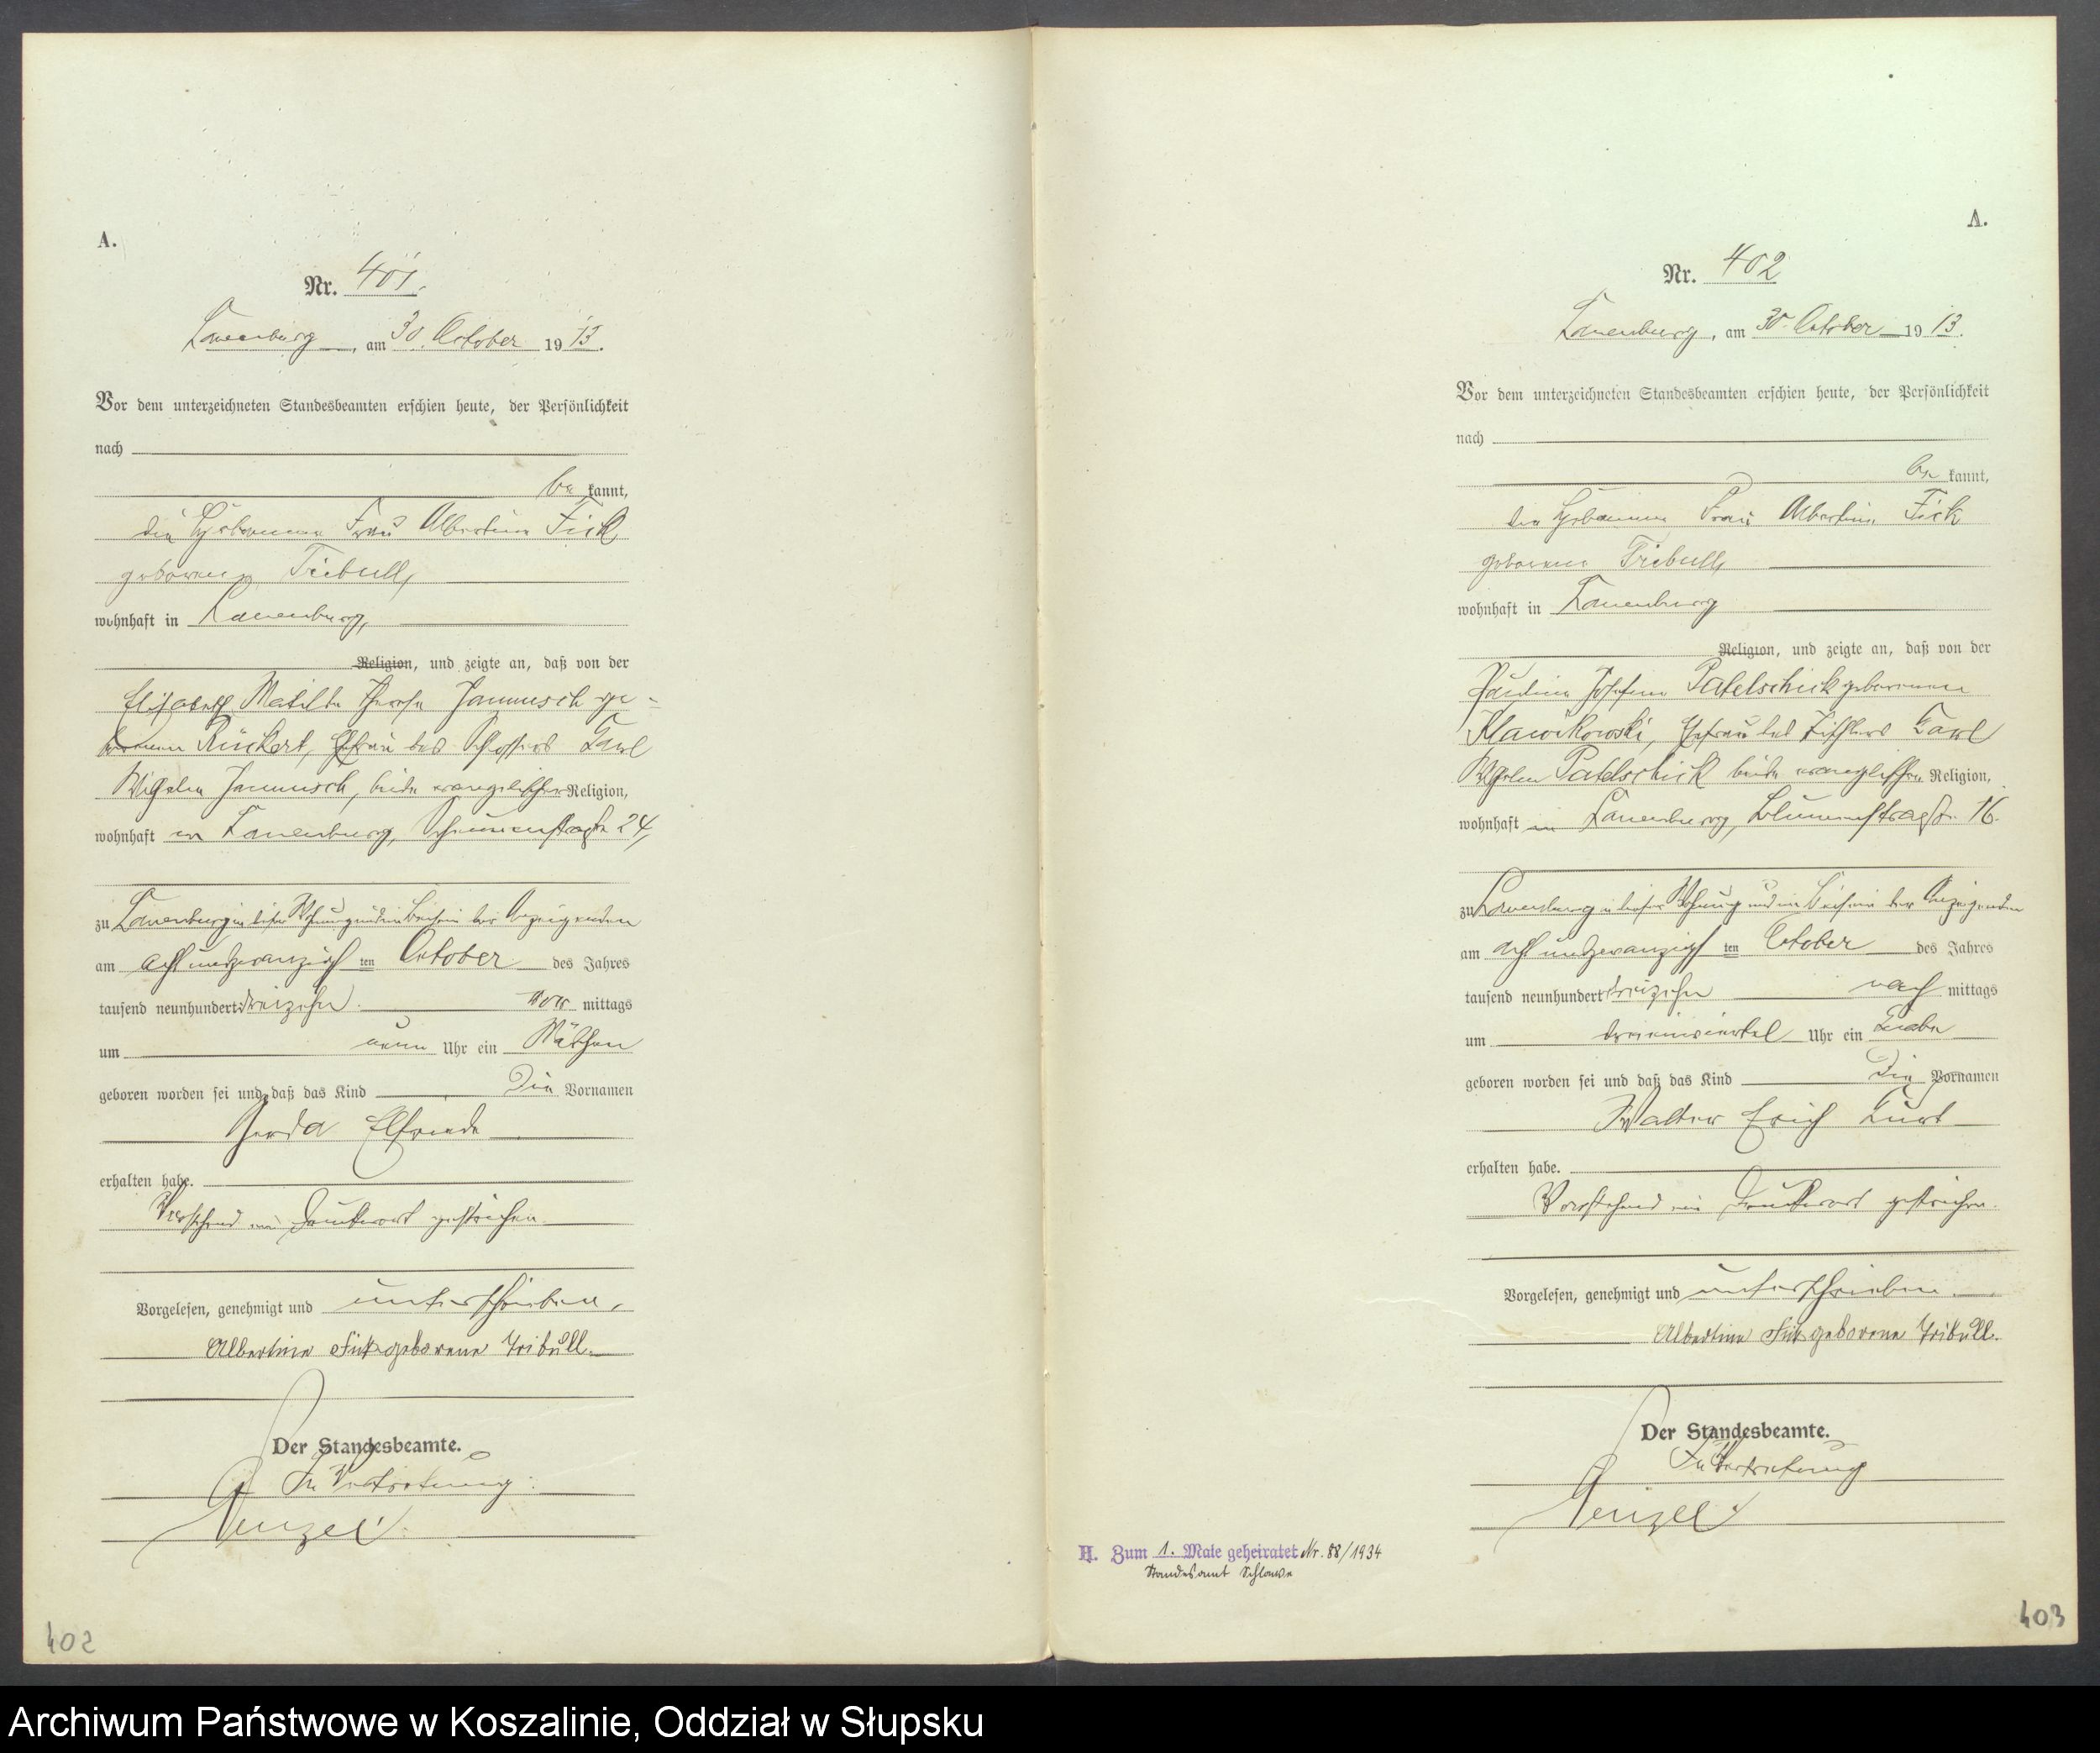 A.
Nr. 401.
Lauenburg, am 30. October 1913.
Vor dem unterzeichneten Standesbeamten erschien heute, der Persönlichkeit
nach
be kannt,
die Hebamme Frau Albertine Fick
geborene Tribull,
wohnhaft in Lauenburg,
Religion, und zeigte an, daß von der
Elisabeth Matilde Therese Jannusch ge-
borenen Rückert, Ehefrau des Schlossers Karl
Wilhelm Jannusch, beide evangelischer Religion,
wohnhaft in Lauenburg, 24,
zu Lauenburg in dieser Wohnung und in Beisein der Anzeigenden
am acht und zwanzigsten October des Jahres
tausend neunhundert dreizehn vor mittags
um neun Uhr ein Mädchen
geboren worden sei und daß das Kind die Vornamen
Gerda Elfriede
erhalten habe.
Vorstehend ein Druckwort gestrichen.
Vorgelesen, genehmigt und unterschrieben.
Albertine Fick geborene Tribull.
Der Standesbeamte.
In Vertretung.
402
A.
Nr. 402
Lauenburg, am 30. October 1913.
Vor dem unterzeichneten Standesbeamten erschien heute, der Persönlichkeit
nach
be kannt,
die Hebamme Frau Albertine Fick
geborene Tribull,
wohnhaft in Lauenburg
Religion, und zeigte an, daß von der
Paulina Josefine Patelschick geborenen
Klawikowski, Ehefrau des Tischlers Karl
Wilhelm Patelschick beide evangelischer Religion,
wohnhaft in Lauenburg, Blumenstraße 16.
zu Lauenburg in dieser Wohnung und in Beisein der Anzeigenden
am acht und zwanzigsten October des Jahres
tausend neunhundert dreizehn nach mittags
um dreieinviertel Uhr ein Knabe
geboren worden sei und daß das Kind die Vornamen
Walter Erich Kurt
erhalten habe.
Vorstehend ein Druckwort gestrichen.
Vorgelesen, genehmigt und unterschrieben.
Albertine Fick geborene Tribull.
Der Standesbeamte.
In Vertretung
H. Zum 1. Male geheiratet Nr. 88/1934
Standesamt Schlawe
403
Archiwum Państwowe w Koszalinie, Oddział w Słupsku